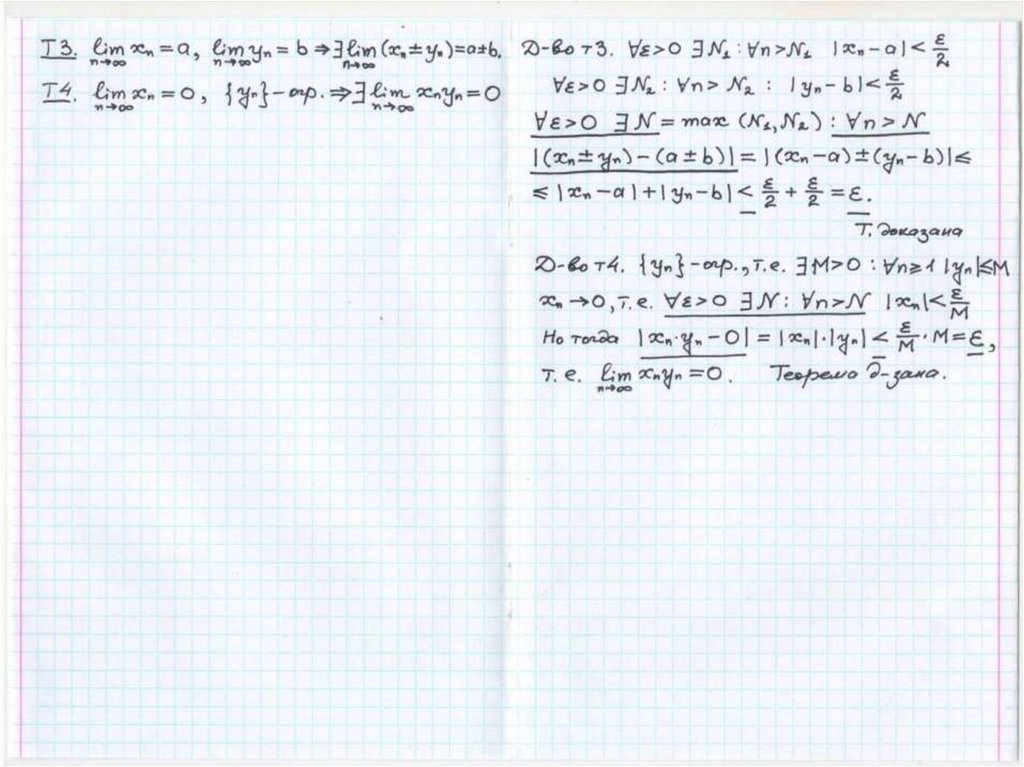 Т3. lim xₙ = a, lim yₙ = b ⇒ ∃ lim (xₙ ± yₙ) = a±b.
n→∞ n→∞ n→∞
Т4. lim xₙ = 0, {yₙ} – огр. ⇒ ∃ lim xₙyₙ = 0
n→∞ n→∞
Д-во т3. ∀ε>0 ∃N₁ : ∀n>N₁ |xₙ – a| < ε/2
∀ε>0 ∃N₂ : ∀n> N₂ : |yₙ – b| < ε/2
∀ε>0 ∃N = max (N₁, N₂) : ∀n > N
|(xₙ ± yₙ) – (a ± b)| = |(xₙ – a) ± (yₙ – b)| ≤
≤ |xₙ – a| + |yₙ – b| < ε/2 + ε/2 = ε.
Т. доказана
Д-во т4. {yₙ} – огр., т.е. ∃M>0 : ∀n≥1 |yₙ| ≤ M
xₙ → 0, т.е. ∀ε>0 ∃N : ∀n>N |xₙ| < ε/M
Но тогда |xₙ·yₙ – 0| = |xₙ|·|yₙ| < ε/M · M = ε,
т.е. lim xₙyₙ = 0. Теорема д-зана.
n→∞